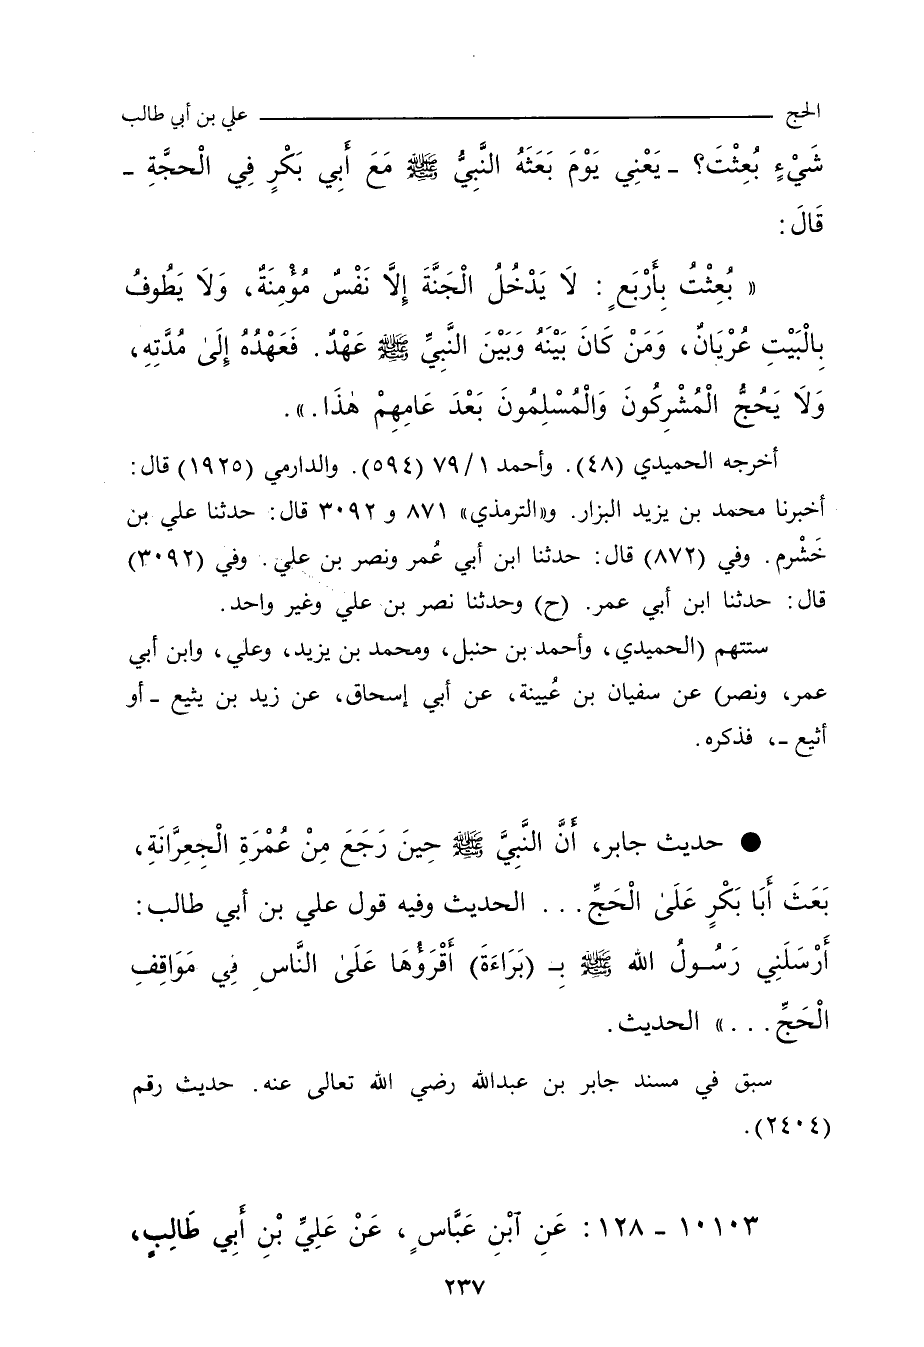 الحج علي بن أبي طالب
شَيْءٍ بُعِثْتَ؟ ـ يَعْنِي يَوْمَ بَعَثَهُ النَّبِيُّ ﷺ مَعَ أَبِي بَكْرٍ فِي الْحجَّةِ ـ
قَالَ :
« بُعِثْتُ بِأَرْبَعٍ : لَا يَدْخُلُ الْجَنَّةَ إِلَّا نَفْسٌ مُؤْمِنَةٌ ، وَلَا يَطُوفُ
بِالْبَيْتِ عُرْيَانٌ ، وَمَنْ كَانَ بَيْنَهُ وَبَيْنَ النَّبِيِّ ﷺ عَهْدٌ . فَعَهْدُهُ إِلَىٰ مُدَّتِهِ ،
وَلَا يَحُجُّ الْمُشْرِكُونَ وَالْمُسْلِمُونَ بَعْدَ عَامِهِمْ هٰذَا . » .
أخرجه الحميدي (٤٨). وأحمد ٧٩/١ (٥٩٤). والدارمي (١٩٢٥) قال :
أخبرنا محمد بن يزيد البزار. و«الترمذي» ٨٧١ و ٣٠٩٢ قال: حدثنا علي بن
خَشْرم. وفي (٨٧٢) قال: حدثنا ابن أبي عُمر ونصر بن علي. وفي (٣٠٩٢)
قال: حدثنا ابن أبي عمر. (ح) وحدثنا نصر بن علي وغير واحد.
ستتهم (الحميدي، وأحمد بن حنبل، ومحمد بن يزيد، وعلي، وابن أبي
عمر، ونصر) عن سفيان بن عُيينة، عن أبي إسحاق، عن زيد بن يثيع ـ أو
أثيع ـ، فذكره.
● حديث جابر، أَنَّ النَّبِيَّ ﷺ حِينَ رَجَعَ مِنْ عُمْرَةِ الْجِعِرَّانَةِ ،
بَعَثَ أَبَا بَكْرٍ عَلَىٰ الْحَجِّ . . . الحديث وفيه قول علي بن أبي طالب :
أَرْسَلَنِي رَسُولُ الله ﷺ بِـ (بَرَاءَةَ) أَقْرَؤُهَا عَلَىٰ النَّاسِ فِي مَوَاقِفِ
الْحَجِّ . . . » الحديث .
سبق في مسند جابر بن عبدالله رضي الله تعالى عنه. حديث رقم
(٢٤٠٤).
١٠١٠٣ ـ ١٢٨ : عَنِ ٱبْنِ عَبَّاسٍ ، عَنْ عَلِيِّ بْنِ أَبِي طَالِبٍ ،
٢٣٧